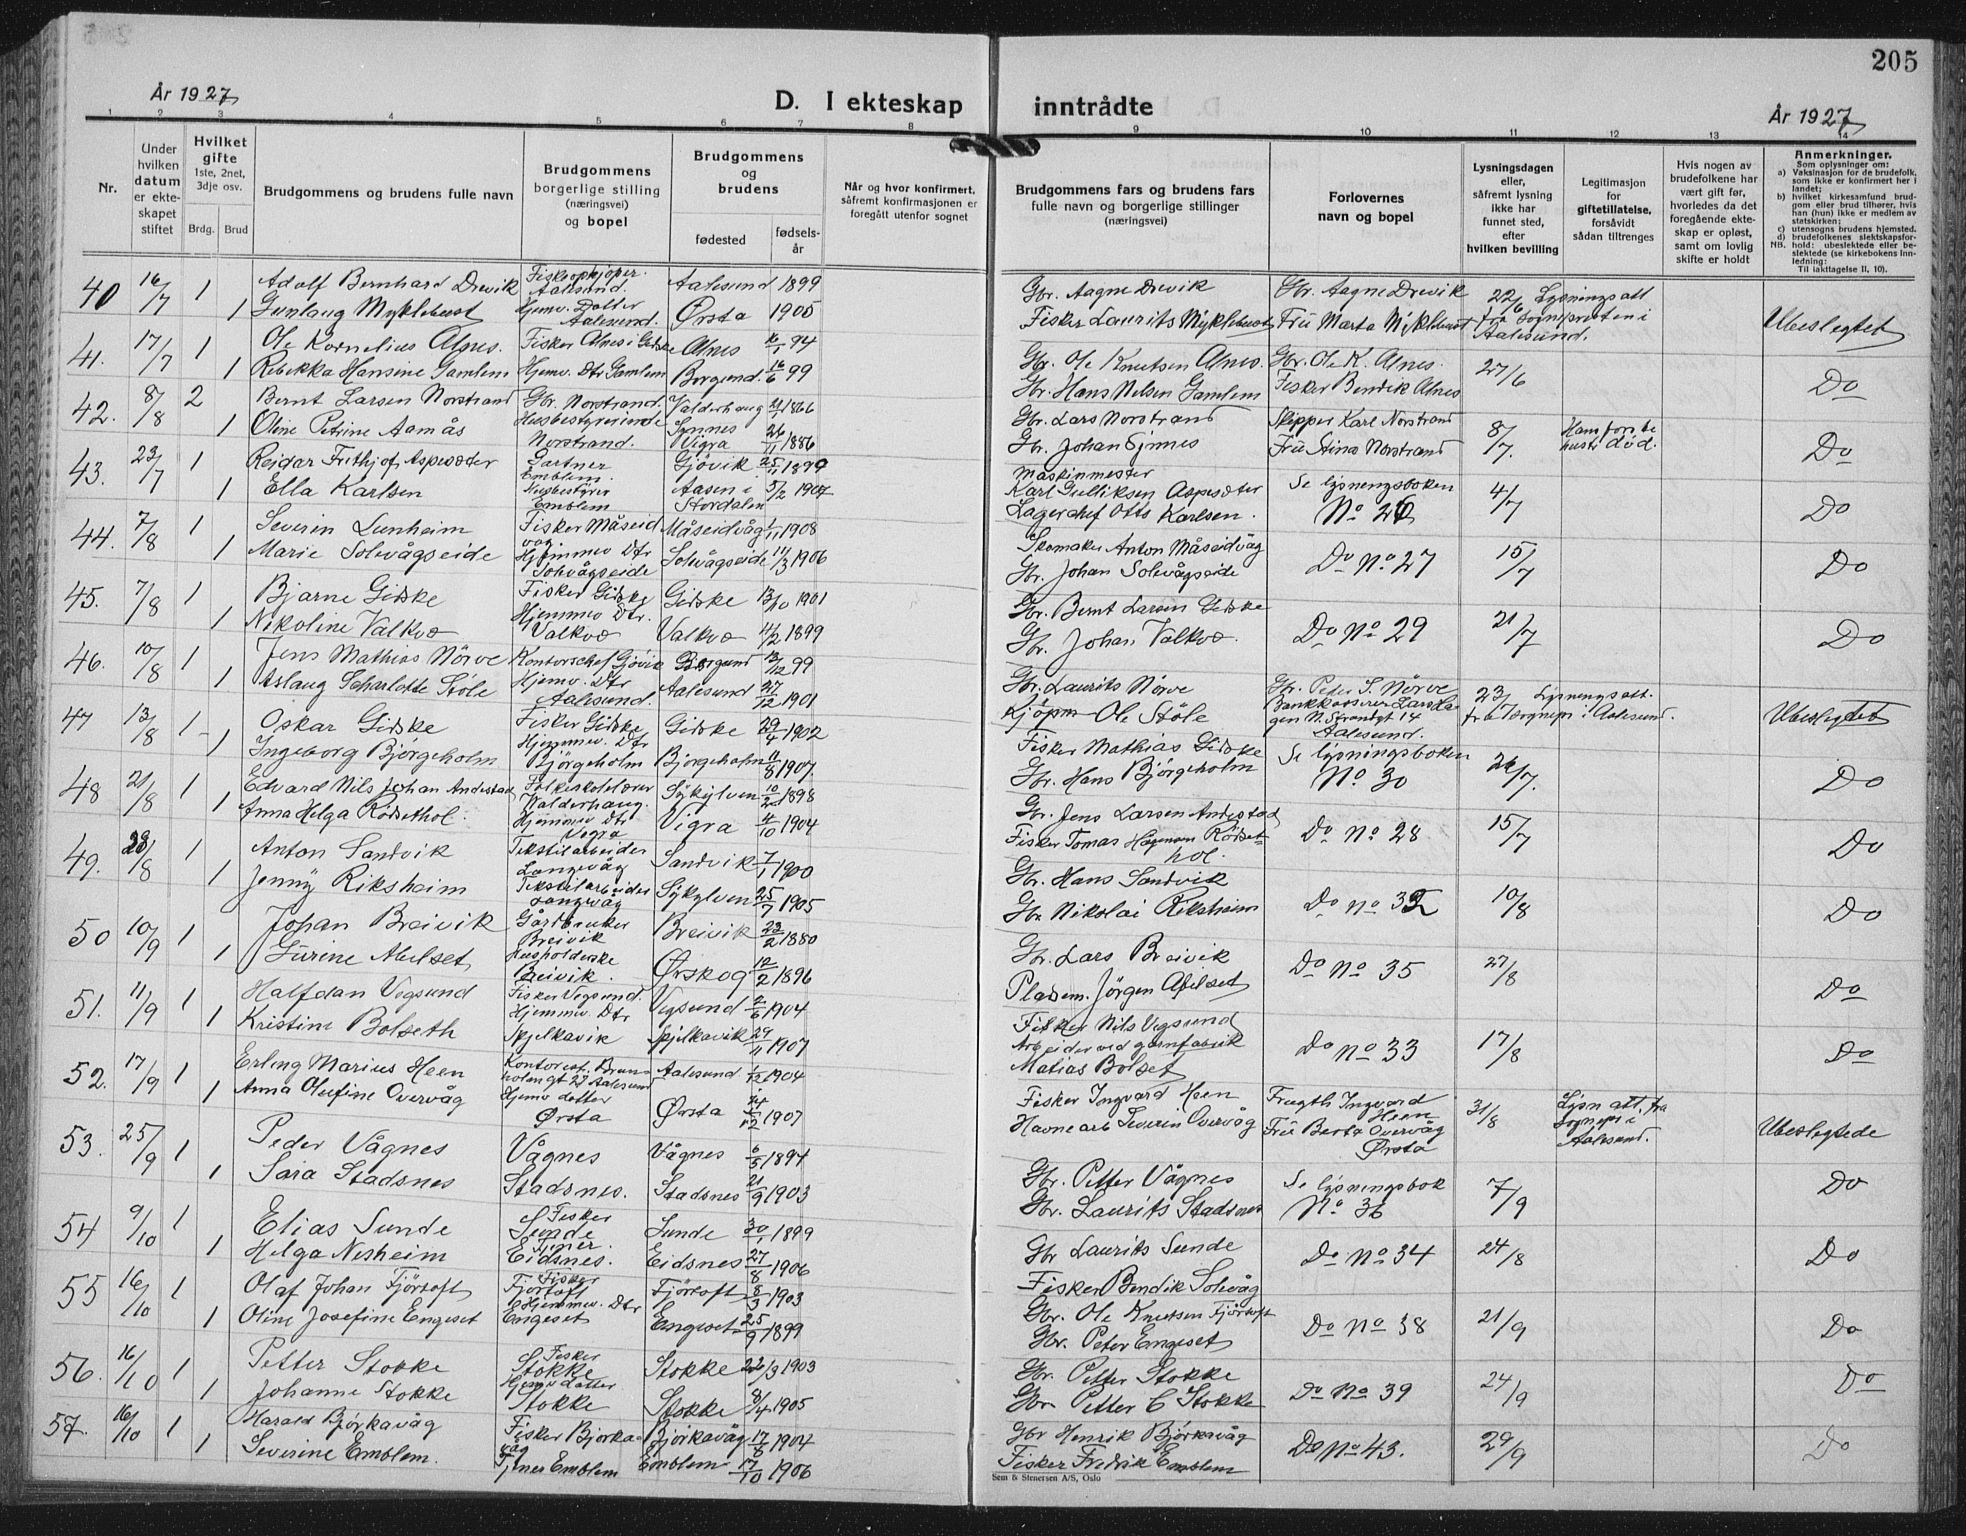 205
År 1927
D. I ekteskap inntrådte
År 1927
1 2 3 4 5 6 7 8 9 10 11 12 13 14
Nr.
Under hvilken datum er ekteskapet stiftet
Hvilket gifte
1ste, 2net, 3dje osv.
Brdg. Brud
Brudgommens og brudens fulle navn
Brudgommens borgerlige stilling (næringsvei) og bopel
Brudgommens og brudens
fødested
fødselsår
Når og hvor konfirmert, såfremt konfirmasjonen er foregått utenfor sognet
Brudgommens fars og brudens fars fulle navn og borgerlige stillinger (næringsvei)
Forlovernes navn og bopel
Lysningsdagen eller, såfremt lysning ikke har funnet sted, efter hvilken bevilling
Legitimasjon for giftetillatelse, forsåvidt sådan tiltrenges
Hvis nogen av brudefolkene har vært gift før, hvorledes da det foregående ekteskap er opløst, samt om lovlig skifte er holdt
Anmerkninger.
Som oplysninger om:
a) Vaksinasjon for de brudefolk, som ikke er konfirmert her i landet;
b) hvilket kirkesamfund brudgom eller brud tilhører, hvis han (hun) ikke er medlem av statskirken;
c) utensogns brudens hjemsted.
d) brudefolkenes slektskapsforhold: ubeslektede eller beslektede (se kirkebokens innledning:
NB.
Til iakttagelse II, 10).
40 16/7 1 Adolf Bernhard Drevik Fiskeopkjøper. Aalesund. Aalesund 1899 Gbr. Aagne Drevik Gbr. Aagne Drevik 22/6 Lysningsatt
1 Gunlaug Myklebust Hjemv. Datter Aalesund. Ørsta 1905 Fisker Laurits Myklebust Fru Marta Myklebust fra Sognepresten i Aalesund. Ubeslegtet
41. 17/7 1 Ole Kornelius Alnes. Fisker Alnes i Giske Alnes 94 Gbr. Ole Knutsen Alnes. Gbr. Ole K. Alnes. 27/6
1 Rebekka Hansine Gamlem Hjemv. Dtr Gamlem Borgund 16/6 99 Gbr. Hans Nilsen Gamlem Fisker Bendik Alnes Do
42. 8/8 2 Bernt Larsen Norstrand Gbr. Norstrand. Valderhaug 1866 Gbr. Lars Norstrand Skipper Karl Norstrand 8/7. Ham forr. be
1 Oline Petrine Aamås Husbestyrerinde Norstrand. Synnes Vigra 26/11 1886 Gbr. Johan Synnes Fru Stina Norstrand hustr død. Do
43. 23/7 1 Reidar Frithjof Aspesæter Gartner Emblem. Gjövik 25/11 1899 Maskinmester Karl Gulliksen Aspesæter Se lysningsboken 4/7
1 Ella Karlsen Husbestyrer Emblem Aasen i Stordalen 5/2 1907 Lagerchef Otto Karlsen. No 26 Do
44. 7/8 1 Severin Lunheim Fisker Måseidvåg Måseidvåg 1/11 1908 Skomaker Anton Måseidvåg
1 Marie Solevågseide Hjemmev Dtr Solevågseide Solevågseide 11/3 1906 Gbr. Johan Solevågseide Do No 27 15/7 Do
45. 7/8 1 Bjarne Giske Fisker Giske Giske 13/10 1901 Gbr. Bernt Larsen Giske
1 Nikoline Valkvæ Hjemmev Dtr. Valkvæ Valkvæ 11/2 1899 Gbr. Johan Valkvæ. Do No 29 21/7 Do
46. 10/8 1 Jens Mathias Nörve Kontorschef Gjövik Borgund 13/12 99 Gbr. Laurits Nörve Gbr. Peter S. Nörve 23/7 Lysningsatt.
1 Aslaug Scharlotte Støle Hjemv. Dtr Aalesund. Aalesund 27/12 1901 Kjöpm Ole Støle Bankkasserer Lars Hagen N. Strandgt 14 Aalesund. fra Sognepr i Aalesund. Ubeslegtet
47 13/8 1 Oskar Giske Fisker Giske Giske 29/4 1902 Fisker Mathias Giske Se lysningsboken
1 Ingeborg Bjørgeholm Hjemmev. Dtr Bjørgeholm Bjørgeholm 11/8 1907. Gbr. Hans Bjørgeholm No 30 26/7. Do
48 21/8 1 Edvard Nils Johan Andestad Folkeskolelærer Valderhaug. Sykylven 10/2 1898 Gbr. Jens Larsen Andestad
1 Anna Helga Rödsethol. Hjemmev Dtr Vigra Vigra 4/10 1904 Fisker Tomas Rödsethol. Do No 28 15/7 Do
49. 28/8 1 Anton Sandvik Tekstilarbeider Langevåg Sandvik 7/1 1900 Gbr. Hans Sandvik
1 Jenny Riksheim Tekstilarbeider Langevåg Sykylven 25/7 1905 Gbr Nikolai Riksheim Do No 32 10/8 Do
50 10/9 1 Johan Breivik Gårdbruker Breivik Breivik 23/2 1880 Gbr. Lars Breivik
1 Gurine Abelset Husholderske Breivik. Ørskog 12/2 1896 Pladsm. Jörgen Abelset Do No 35 27/8 Do
51. 11/9 1 Halfdan Vegsund Fisker Vegsund. Vegsund 2/6 1904 Fisker Nils Vegsund
1 Kristine Bolseth Hjemmev. Dtr Spjelkavik Spjelkavik 29/11 1907 Arbeider ved garnfabrik Matias Bolset Do No 33 17/8 Do
52. 17/9 1 Erling Marius Heen Kontorist. Brunholmgt 27 Aalesund Aalesund 1/12 1904 Fisker Ingvard Heen Frugth Ingvard Heen 31/8 Lysn att. fra
1 Anna Olufine Overvåg Hjemv datter Ørsta Ørsta 1907 Havnearb Severin Overvåg Fru Berta Overvåg Ørsta Sognepr i Aalesund. Ubeslegtede
53. 25/9 1 Peder Vågnes Vågnes Vågnes 6/5 1894 Gbr. Petter Vågnes Se lysningsbok 7/9
1 Sara Stadsnes Stadsnes. Stadsnes 21/9 1903 Gbr. Laurits Stadsnes No 36 Do
54 9/10 1 Elias Sunde Fisker Sunde Sunde 30/1 1899 Gbr Laurits Sunde
1 Helga Nesheim Tjener. Eidsnes. Eidsnes 27/8 1906 Fisker Bendik Solevåg Do No 34 24/8 Do
55 16/10 1 Olaf Johan Fjörtoft Fisker Fjörtoft Fjörtoft 8/3 1903 Gbr. Ole Knutsen Fjörtoft
1 Oline Josefine Engeset Hjemmev. Dtr Engeset Engeset 25/9 1899 Gbr. Peter Engeset Do No 38 21/9 Do
56. 16/10 1 Petter Stokke Fisker Stokke Stokke 22/3 1903 Gbr. Petter Stokke
1 Johanne Stokke Hjemv datter Stokke Stokke 8/4 1905 Gbr Petter C Stokke Do No 39 24/9 Do
57. 16/10 1 Harald Bjørkavåg Fisker Bjorkavåg Bjørkavåg 17/8 1904 Gbr Henrik Bjørkavåg
1 Severine Emblem. Tjener Emblem Emblem 17/10 1906 Fisker Fredrik Emblem Do No 43. 29/9 Do
Sem & Stenersen A/S, Oslo